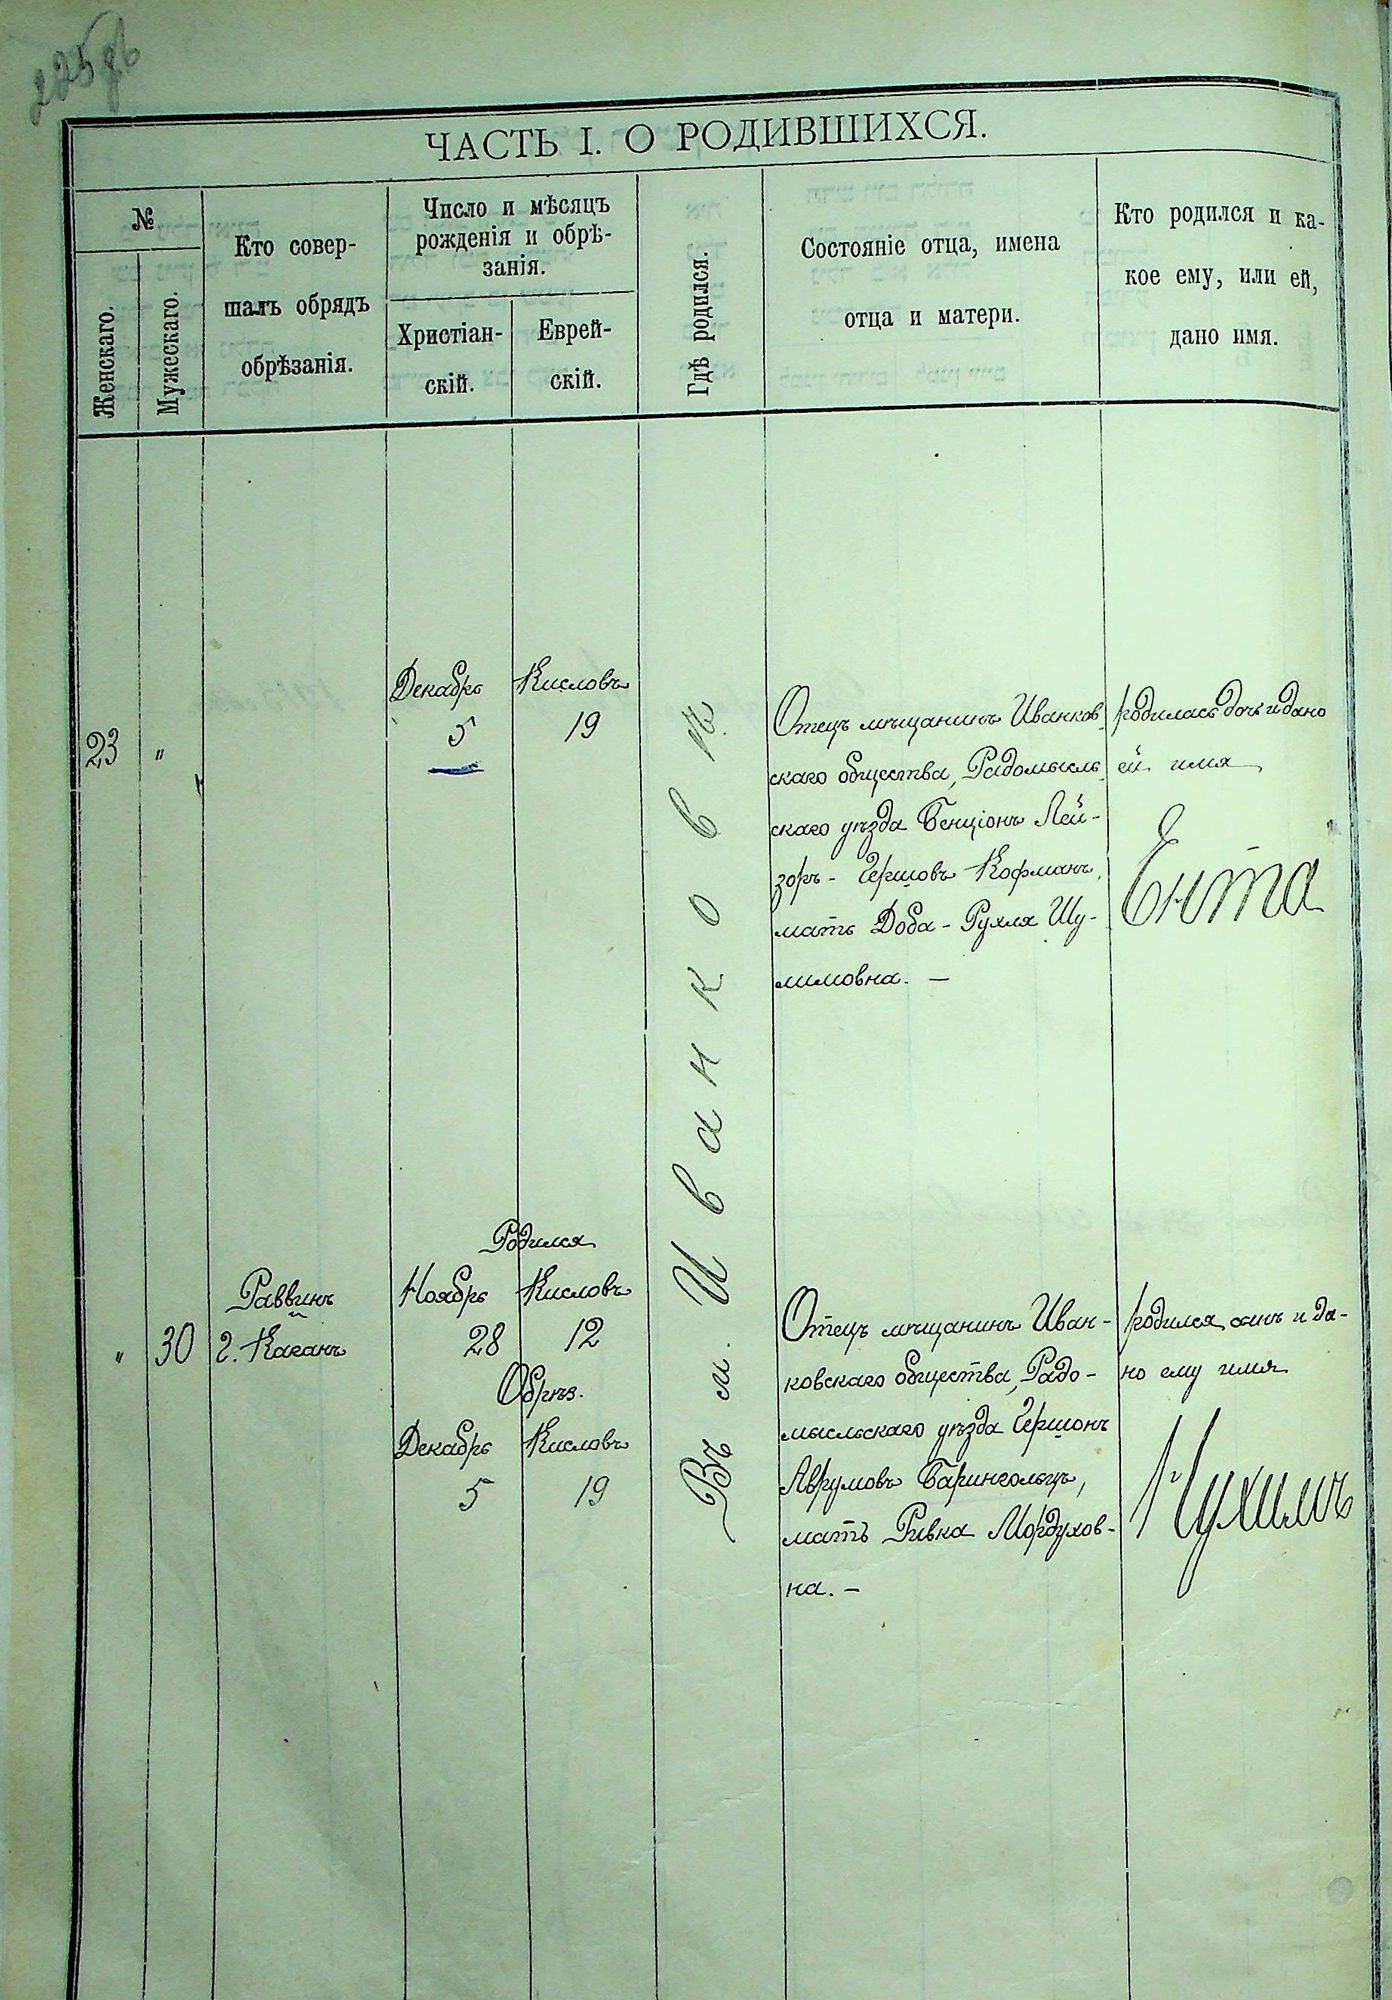 ЧАСТЬ I. О РОДИВШИХСЯ.
№
Женскаго.
Мужескаго.
Кто совер-
шалъ обрядъ
обрѣзанія.
Число и мѣсяцъ
рожденія и обрѣ-
занія.
Христіан-
скій.
Еврей-
скій.
Гдѣ родился.
Состояніе отца, имена
отца и матери.
Кто родился и ка-
кое ему, или ей,
дано имя.
23
"
Декабрь
5
Кисловъ
19
Въ м. Иванковѣ
Отецъ мѣщанинъ Иванков-
скаго общества, Радомысль-
скаго уѣзда Бенціонъ Лей-
зоръ - Гершовъ Кофманъ,
мать Доба - Рухля Шу-
лимовна. —
родилась дочь и дано
ей имя
Ента
"
30
Раввинъ
Г. Каганъ
Родился
Ноябрь
28
Кисловъ
12
Обрѣз.
Декабрь
5
Кисловъ
19
Отецъ мѣщанинъ Иван-
ковскаго общества, Радо-
мысльскаго уѣзда Гершонъ
Аврумовъ Барингольцъ,
мать Ривка Мордухов-
на. —
родился сынъ и да-
но ему имя
Нухимъ